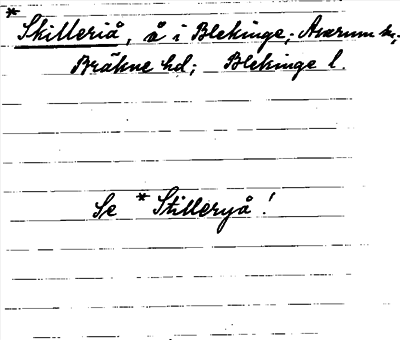 * Skilleriå, å i Blekinge; Asarum sn,
Bräkne hd; Blekinge l.
Se * Stilleryå!